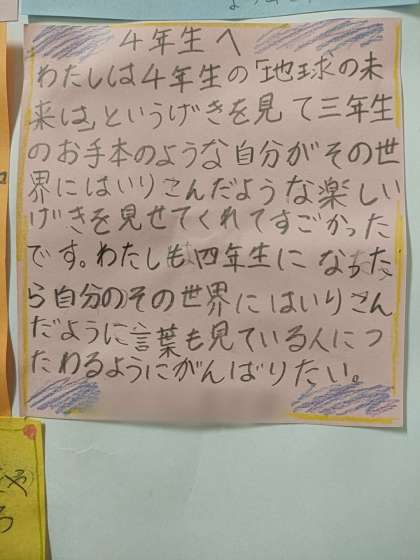 4年生へ
わたしは4年生の「地球の未
来は」というげきを見て三年生
のお手本のような自分がその世
界にはいりこんだような楽しい
げきを見せてくれてすごかった
です。わたしも四年生になったた
ら自分のその世界にはいりこん
だように言葉も見ている人につ
たわるようにがんばりたい。